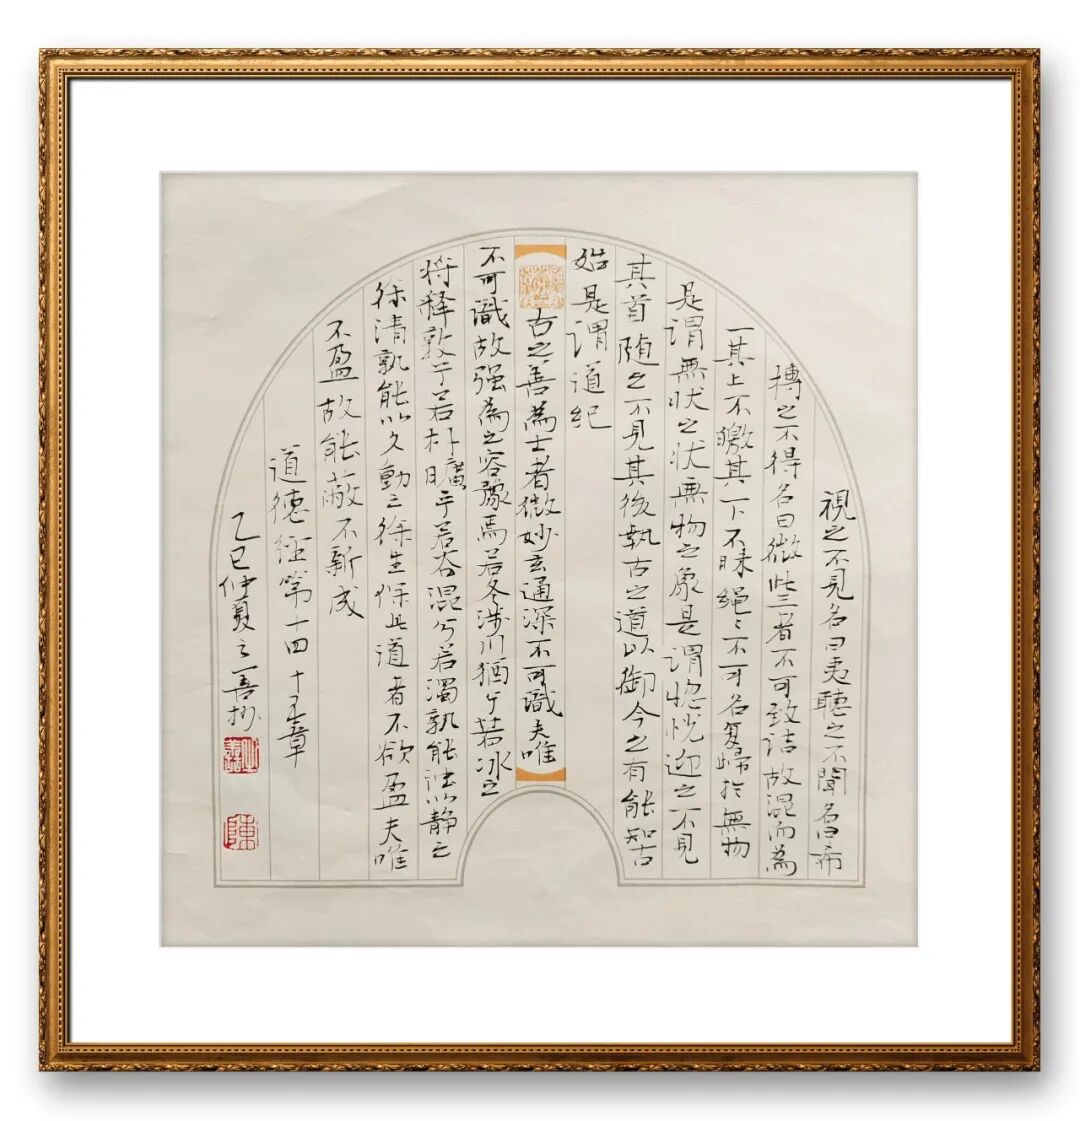 視之不見名曰夷聽之不聞名曰希
搏之不得名曰微此三者不可致詰故混而為
一其上不皦其下不昧繩〻不可名复歸於無物
是謂無状之状無物之象是謂惚恍迎之不見
其首随之不見其後執古之道以御今之有能知古
始是謂道纪
古之善為士者微妙玄通深不可識夫唯
不可識故强為之容豫焉若冬涉川猶兮若冰之
将释敦兮若朴曠乎若谷混兮若濁孰能浊以静之
徐清孰能以久動之徐生保此道者不欲盈夫唯
不盈故能蔽不新成
道德经第十四十五章
乙巳仲夏之善抄
陳